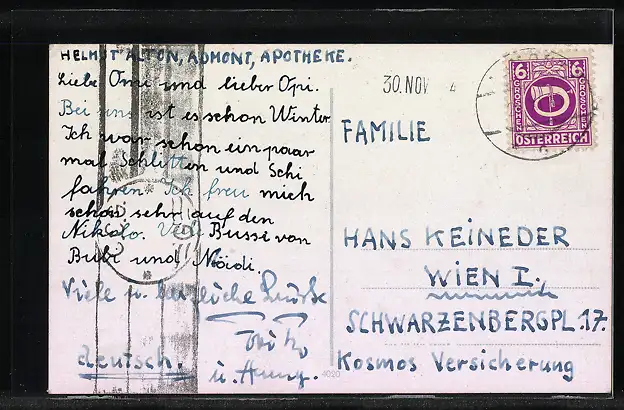 HELMUT ALTON, ADMONT, APOTHEKE.
Liebe Omi und lieber Opi.
Bei uns ist es schon Winter
Ich war schon ein paar
mal Schlitten und Schi
fahren. Ich freu mich
schon sehr auf den
Nikolo. Viele Bussi von
Bubi und Heidi.
Viele u. herzliche Grüsse
deutsch.
u.
30. NOV 4
6 6
GROSCHEN GROSCHEN
ÖSTERREICH
FAMILIE
HANS KEINEDER
WIEN I.
SCHWARZENBERGPL. 17.
Kosmos Versicherung
4020